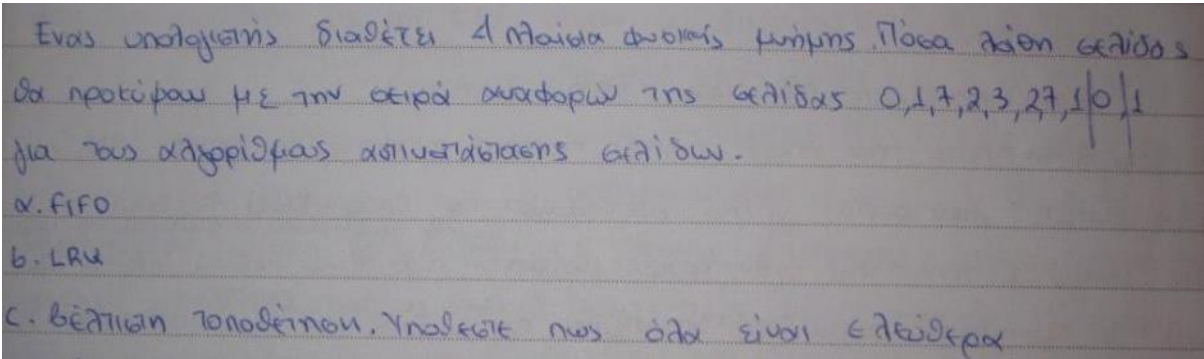 Ενας υπολογιστής διαθέτει 4 πλαίσια φυσικής μνήμης. Πόσα λάθη σελίδας
θα προκύψουν με την σειρά αναφορών της σελίδας 0,1,7,2,3,2,7,1,0,1
για τους αλγορίθμους αντικατάστασης σελίδων.
α. FIFO
b. LRU
c. βέλτιστη τοποθέτηση. Υποθέστε πως όλα είναι ελεύθερα